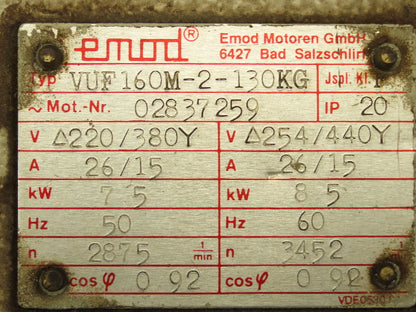 emod® Emod Motoren GmbH
6427 Bad Salzschlirf
Typ VUF160M-2-130KG Jspl. Kl.
~ Mot.-Nr. 02837259 IP 20
V Δ220/380Y V Δ254/440Y
A 26/15 A 26/15
kW 7 5 kW 8 5
Hz 50 Hz 60
n 2875 1/min n 3452 1/min
cos φ 0 92 cos φ 0 92